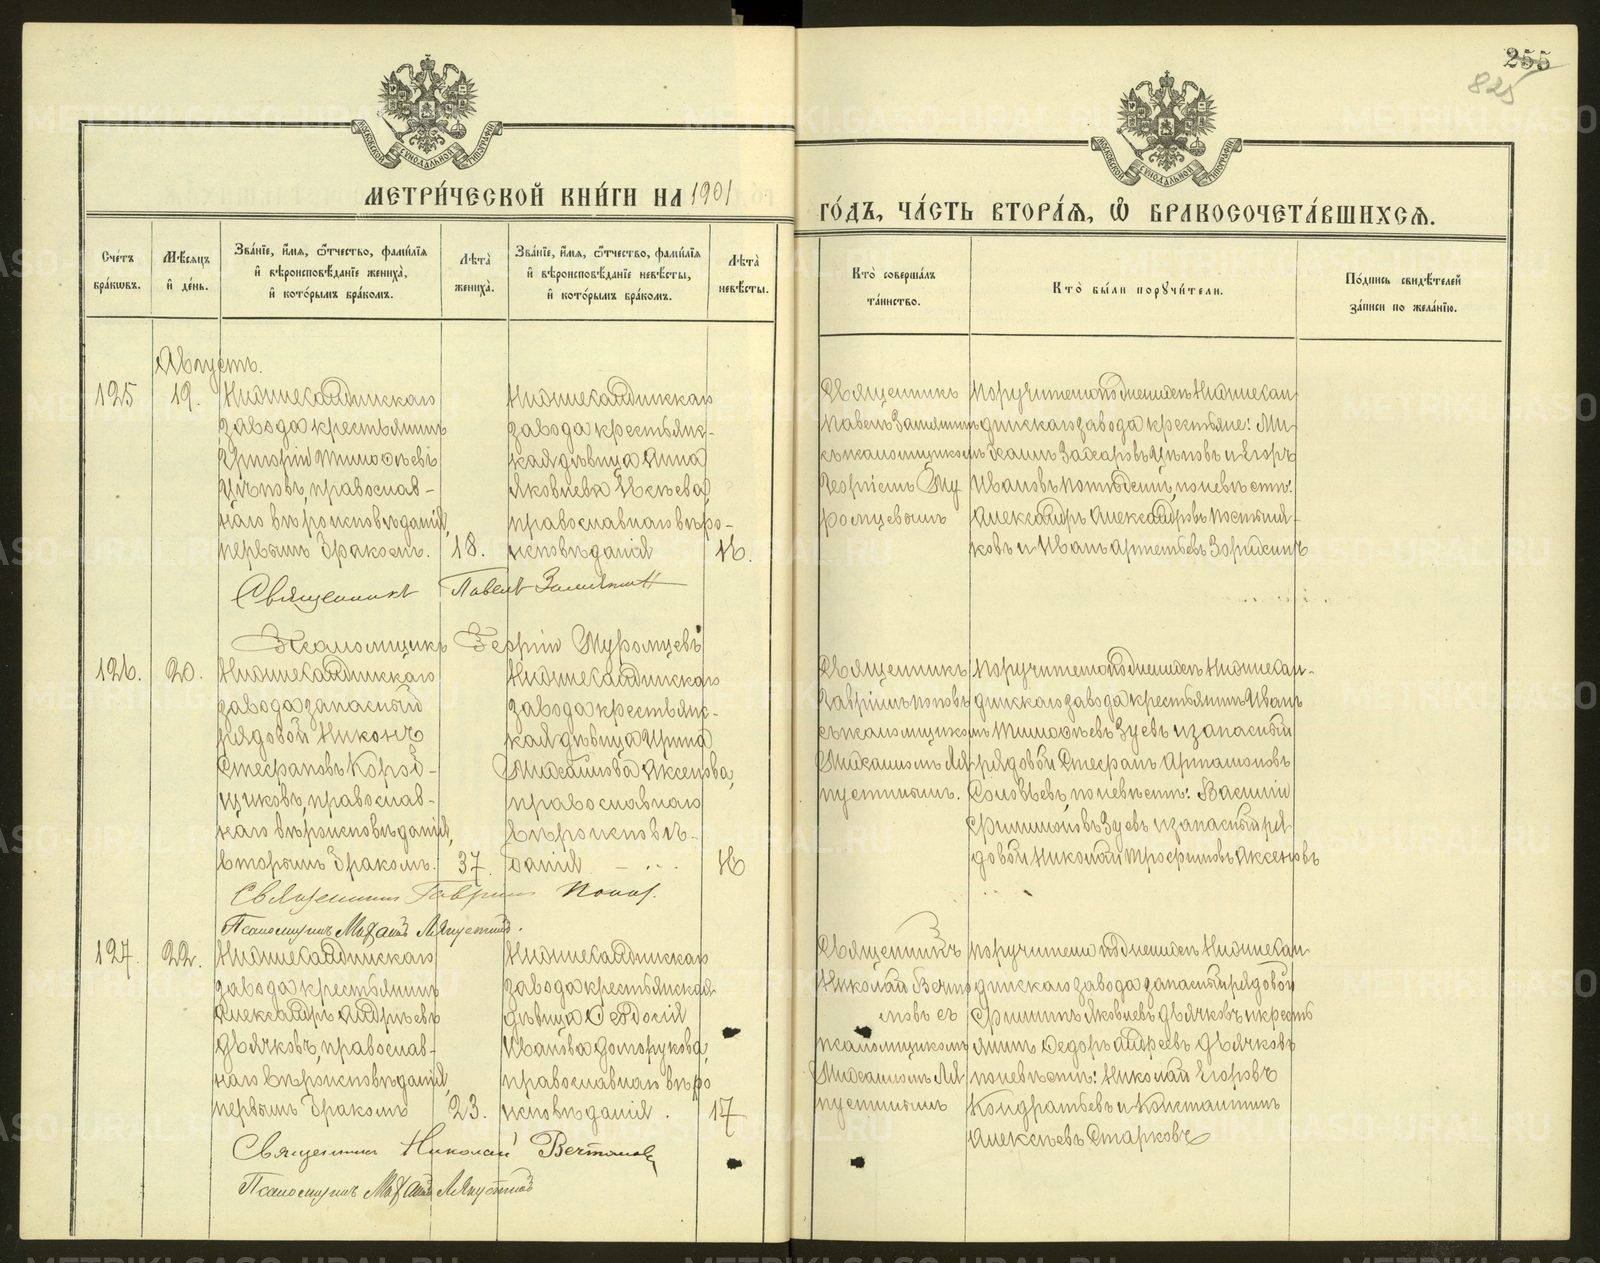 255
825
МОСКОВСКОЙ СѴНОДАЛЬНОЙ ТИПОГРАФІИ
МОСКОВСКОЙ СѴНОДАЛЬНОЙ ТИПОГРАФІИ
МЕТРИ́ЧЕСКОЙ КНИ́ГИ НА 1901
ГО́ДЪ, ЧА́СТЬ ВТОРА́Я, Ѽ БРАКОСОЧЕТА́ВШИХСЯ.
Сче́тъ бра́кѡвъ.
Мѣ́сяцъ и҆ де́нь.
Зва́нїе, и҆́мя, ѻ҆́тчество, фами́лїя и҆ вѣроисповѣ́данїе жениха̀, и҆ кото́рымъ бра́комъ.
Лѣ́та̀ жениха̀.
Зва́нїе, и҆́мя, ѻ҆́тчество, фами́лїя и҆ вѣроисповѣ́данїе невѣ́сты, и҆ кото́рымъ бра́комъ.
Лѣ́та̀ невѣ́сты.
Кто̀ соверша́лъ та́инство.
Кто̀ бы́ли порꙋчи́тели.
По́дпись свидѣ́телей за́писи по жела́нїю.
Августъ.
125
19.
Нижнесалдинскаго
завода крестьянинъ
Григорій Тимоѳеевъ
Цѣповъ, православ-
наго вѣроисповѣданія,
первымъ бракомъ.
18.
Нижнесалдинскаго
завода крестьянс-
кая дѣвица Анна
Яковлева
православнаго вѣро-
исповѣданія
16.
Священникъ
Павелъ Замятинъ
съ псаломщикомъ
Георгіемъ Му
ромцевымъ
Поручители по женихѣ: Нижнесал
динскаго завода крестьяне: Ми
хаилъ Захаровъ Цѣповъ и Егоръ
Ивановъ по невѣстѣ:
Александръ Александровъ Постыля-
ковъ и Иванъ Артемьевъ Зорихинъ
Священникъ Павелъ Замятинъ
Псаломщикъ Георгій Муромцевъ
126.
20.
Нижнесалдинскаго
завода запасный
рядовой Никонъ
Стефановъ Короб-
щиковъ, православ-
наго вѣроисповѣданія,
вторымъ бракомъ.
37.
Нижнесалдинскаго
завода крестьянс-
кая дѣвица Ирина
Михаилова Аксенова,
православнаго
вѣроисповѣ-
данія
16
Священникъ
Гавріилъ Поповъ
съ псаломщикомъ
Михаиломъ Ля
пустинымъ.
Поручители по женихѣ: Нижнесал-
динскаго завода крестьянинъ Иванъ
Тимоѳеевъ Зуевъ и запасный
рядовой Стефанъ Артамоновъ
Соловьевъ, по невѣстѣ: Василій
Филимоновъ Зуевъ и запасный ря
довой Николай Трофимовъ Аксеновъ
Священникъ Гавріилъ Поповъ.
Псаломщикъ Михаилъ Ляпустинъ.
127.
22.
Нижнесалдинскаго
завода крестьянинъ
Александръ Андреевъ
Дьячковъ, православ-
наго вѣроисповѣданія,
первымъ бракомъ
23.
Нижнесалдинскаго
завода крестьянская
дѣвица Ѳеодосія
Иванова Долгорукова,
православнаго вѣро
исповѣданія.
17
Священникъ
Николай
съ
псаломщикомъ
Михаиломъ Ля
пустинымъ
Поручители по женихѣ: Нижнесал
динскаго завода запасный рядовой
Филиппъ Яковлевъ Дьячковъ и кресть
янинъ Ѳедоръ Андреевъ Дьячковъ
по невѣстѣ: Николай Егоровъ
Кондратьевъ и Константинъ
Алексѣевъ Старковъ
Священникъ Николай
Псаломщикъ Михаилъ Ляпустинъ
METRIKI.GASO-URAL.RU